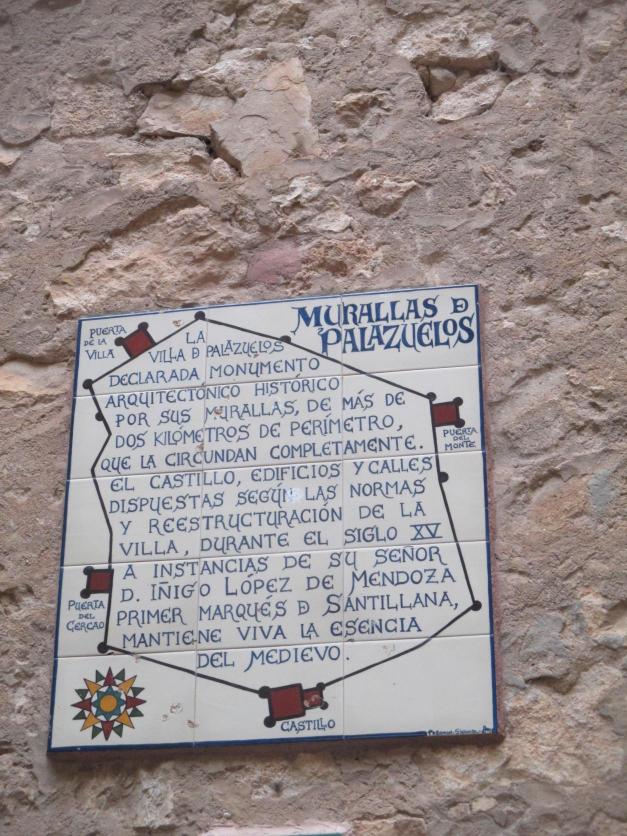 MURALLAS D
PALAZUELOS
PUERTA
DE LA
VILLA
LA
VILLA D PALAZUELOS
DECLARADA MONUMENTO
ARQUITECTÓNICO HISTÓRICO
POR SUS MURALLAS, DE MÁS DE
DOS KILÓMETROS DE PERÍMETRO,
QUE LA CIRCUNDAN COMPLETAMENTE.
EL CASTILLO, EDIFICIOS Y CALLES
DISPUESTAS SEGÚN LAS NORMAS
Y REESTRUCTURACIÓN DE LA
VILLA, DURANTE EL SIGLO XV
A INSTANCIAS DE SU SEÑOR
D. IÑIGO LÓPEZ DE MENDOZA
PRIMER MARQUÉS D SANTILLANA,
MANTIENE VIVA LA ESENCIA
DEL MEDIEVO.
PUERTA
DEL
MONTE
PUERTA
DEL
CERCAO
CASTILLO